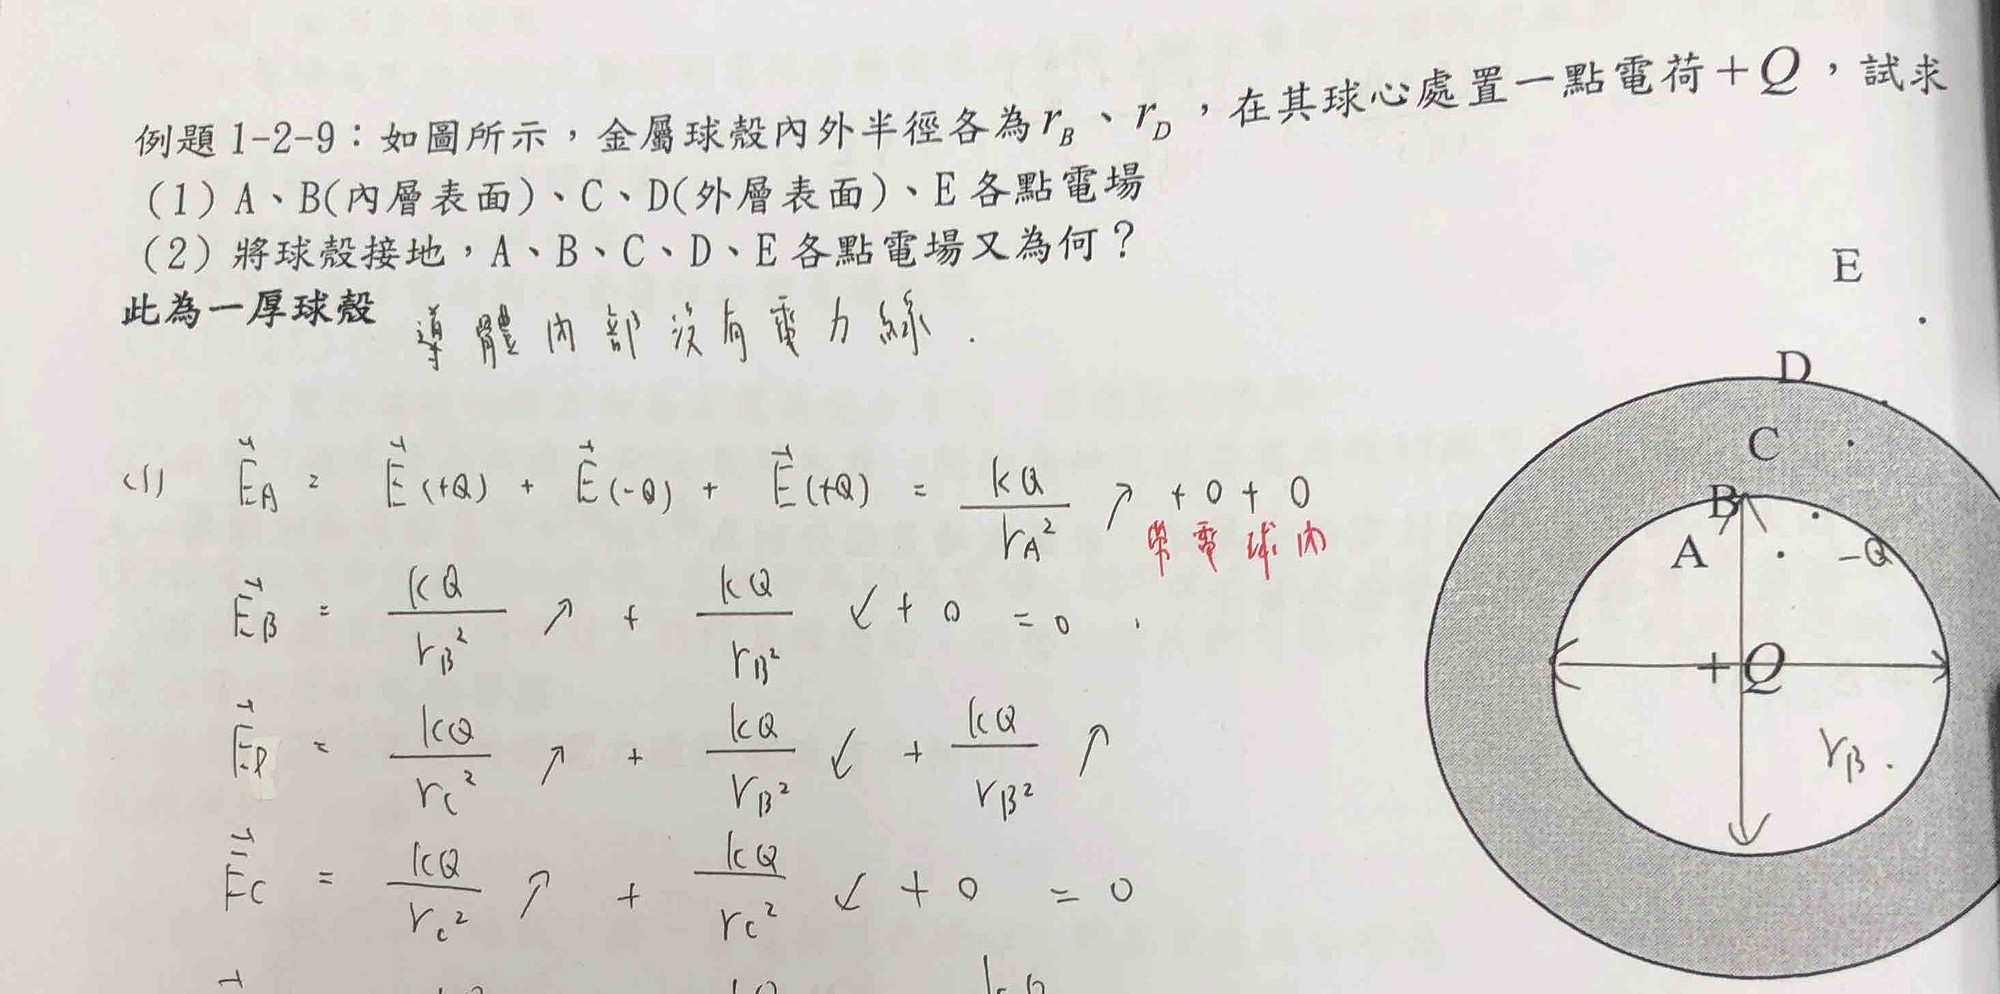 例題 1-2-9：如圖所示，金屬球殼內外半徑各為 r_B、r_D，在其球心處置一點電荷＋Q，試求
（1）A、B(內層表面)、C、D(外層表面)、E 各點電場
（2）將球殼接地，A、B、C、D、E 各點電場又為何？
此為一厚球殼
導體內部沒有電力線.
(1) E⃗_A = E⃗(+Q) + E⃗(-Q) + E⃗(+Q) = kQ/r_A² ↗ + 0 + 0
帶電球內
E⃗_B = kQ/r_B² ↗ + kQ/r_B² ↙ + 0 = 0.
= kQ/r_C² ↗ + kQ/r_B² ↙ + kQ/r_B² ↗
E⃗_C = kQ/r_C² ↗ + kQ/r_C² ↙ + 0 = 0
E
D
C
B
A
-Q
+Q
r_B.